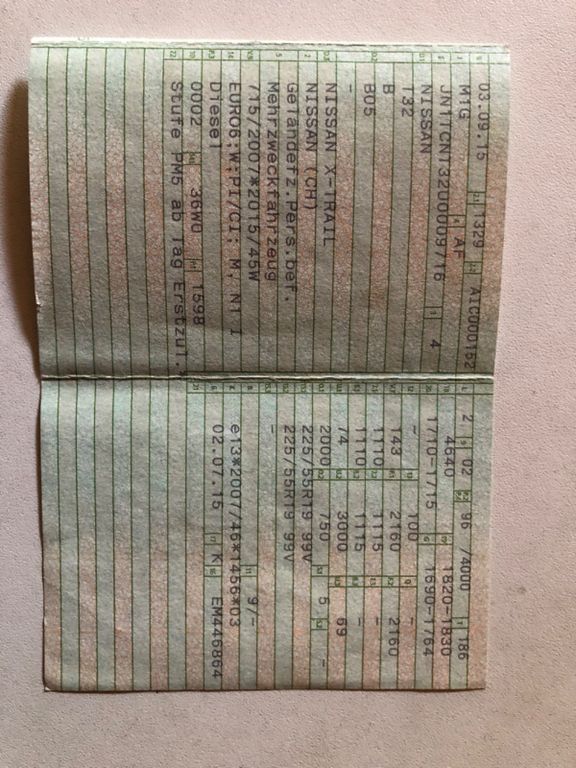 03.09.15 1329 AIC000152
M1G AF
JN1TCNT32U0009716 4
NISSAN
T32
B
B05
-
NISSAN X-TRAIL
NISSAN (CH)
Geländefz.Pers.bef.
Mehrzweckfahrzeug
715/2007*2015/45W
EURO6;W;PI/CI; M, N1 I
Diesel
0002 36W0 1598
Stufe PM5 ab Tag Erstzul.
2 02 96 /4000 186
4640 1820-1830
1710-1715 1690-1764
- 100 -
143 2160 2160
1110 1115 -
1110 1115 -
74 3000 69
2000 750 5 -
225/55R19 99V
225/55R19 99V
-
9/-
e13*2007/46*1456*03
02.07.15 K EM446864